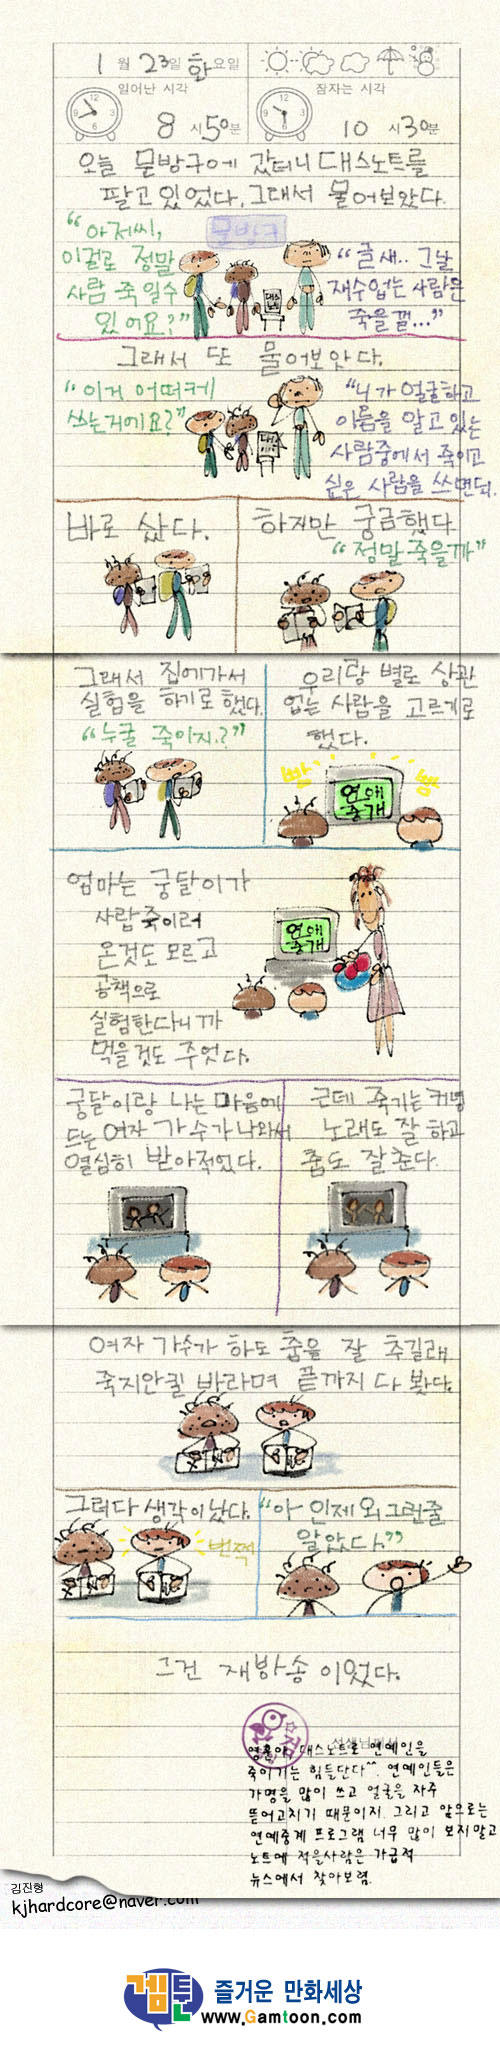 1월 23일 화요일
일어난 시각
잠자는 시각
8시 50분
10시 30분
오늘 문방구에 갔더니 대스노트를
팔고 있었다. 그래서 물어보았다.
문방구
"아저씨,
이걸로 정말
사람 죽일수
있어요?"
대스
노트
"글새.. 그날
재수없는 사람은
죽을껄..."
그래서 또 물어보앗다.
"이거 어떠케
쓰는거에요?"
"니가 얼굴하고
이름을 알고 있는
사람중에서 죽이고
십은 사람을 쓰면되.
바로 샀다.
하지만 궁금했다
"정말 죽을까"
그래서 집에가서
실험을 하기로 했다.
"누굴 죽이지?"
우리랑 별로 상관
없는 사람을 고르기로
했다.
빰 빰
연애
중개
엄마는 궁달이가
사람죽이러
온것도 모르고
공책으로
실험한다니까
먹을것도 주었다.
연애
중개
궁달이랑 나는 마음에
드는 여자 가수가 나와서
열심히 받아적었다.
근데 죽기는 커녕
노래도 잘하고
춤도 잘춘다.
여자 가수가 하도 춤을 잘 추길래
죽지안킬 바라며 끝까지 다 봤다.
그러다 생각이났다.
번쩍
"아 인제 왜 그런줄
알았다"
그건 재방송이었다.
영훈아 대스노트로 연예인을
죽이기는 힘들단다^^. 연예인들은
가명을 많이 쓰고 얼굴을 자주
뜯어고치기 때문이지. 그리고 앞으로는
연예중계 프로그램 너무 많이 보지말고
노트에 적을사람은 가급적
뉴스에서 찾아보렴.
김진형
kjhardcore@naver.com
겜툰 즐거운 만화세상
www.Gamtoon.com